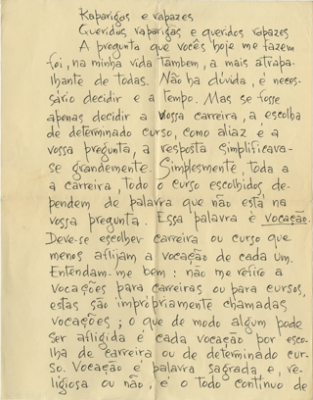 Raparigas e rapazes
Queridas raparigas e queridos rapazes
A pregunta que vocês hoje me fazem
foi, na minha vida tambem, a mais atrapa-
lhante de todas. Não ha dúvida, é neces-
sário decidir e a tempo. Mas se fosse
apenas decidir a vossa carreira, a escolha
de determinado curso, como aliaz é a
vossa pregunta, a resposta simplificava-
se grandemente. Simplesmente, toda a
a carreira, todo o curso escolhidos de-
pendem de palavra que não está na
vossa pregunta. Essa palavra é vocação.
Deve-se escolher carreira ou curso que
menos aflijam a vocação de cada um.
Entendam-me bem: não me refiro a
vocações para carreiras ou para cursos,
estas são impròpriamente chamadas
vocações; o que de modo algum pode
ser afligida é cada vocação por esco-
lha de carreira ou de determinado cur-
so. Vocação é palavra sagrada e, re-
ligiosa ou não, é o todo contínuo de